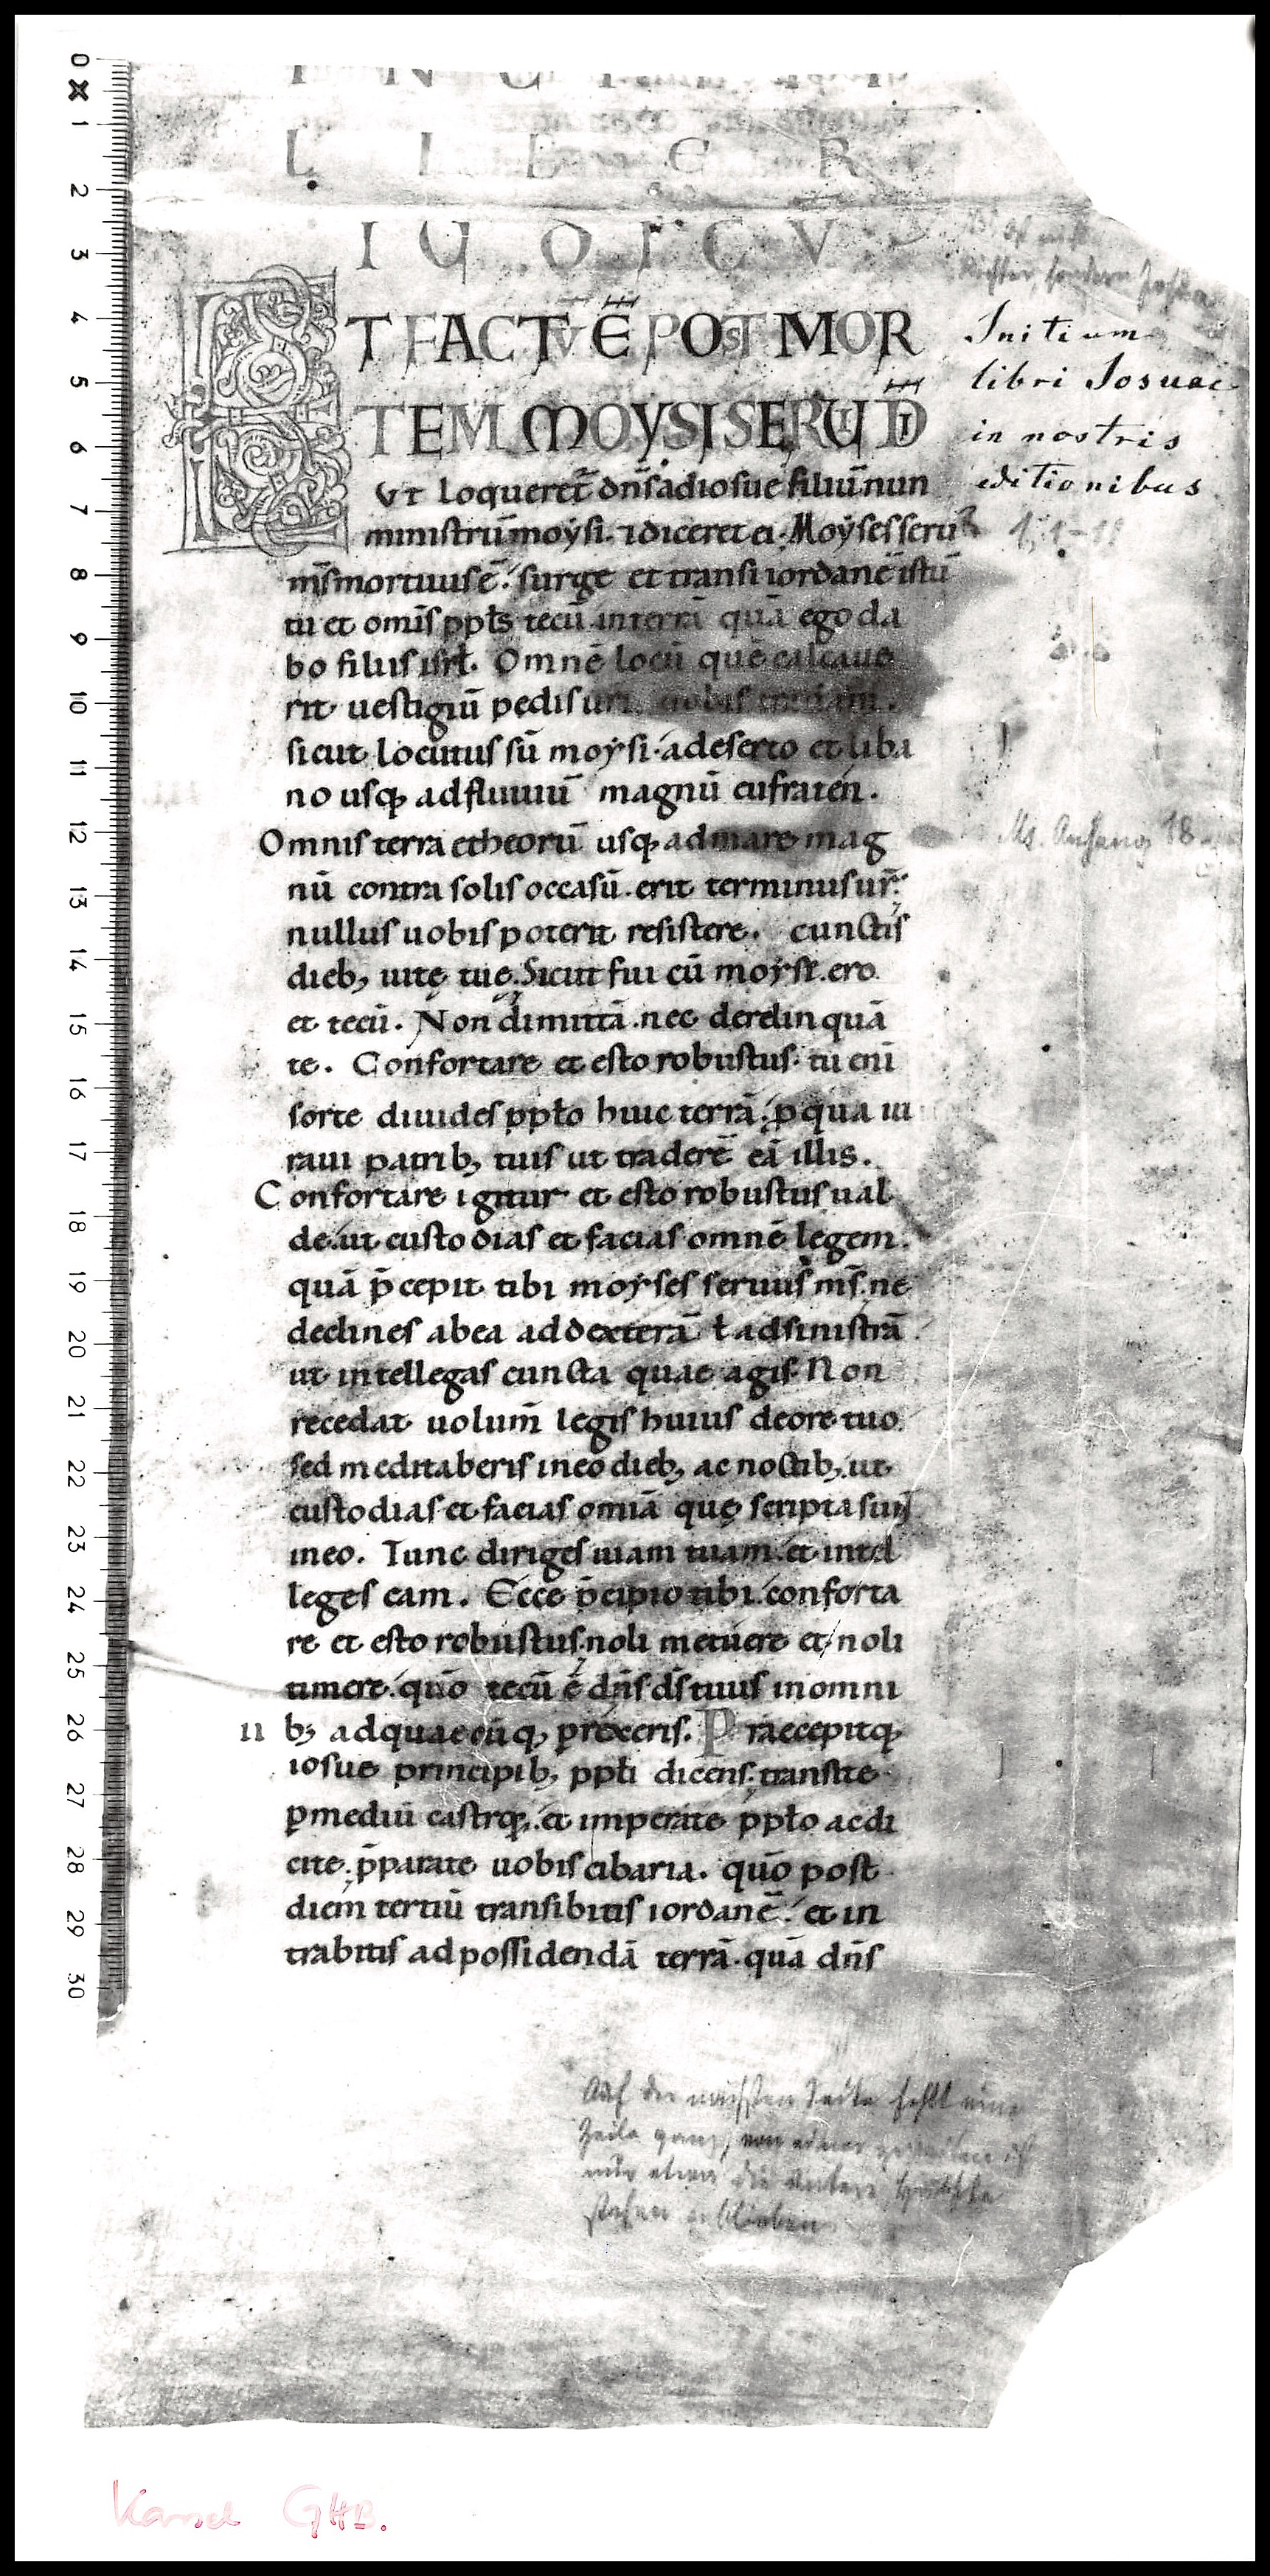 INCIPIT
LIBER
IUDICV
ET FACTV̅ E̅ POST MOR
TEM MOYSI SERUI DI
VT loqueret̅ dn̅s ad iosue filiu̅ nun
ministru̅ moysi. & diceret ei. Moyses seruꝰ
m̅s mortuus e̅. surge et transi iordane̅ istu̅
tu et om̅is ppl̅s tecu̅ in terra̅ qua̅ ego da
bo filiis isrl̅. Omne̅ locu̅ que̅ calcaue
rit uestigiu̅ pedis uri.
sicut locutus su̅ moysi. a deserto et liba
no usq; ad fluuiu̅ magnu̅ eufraten.
Omnis terra etheoru̅ usq; ad mare mag
nu̅ contra solis occasu̅. erit terminus ur̅.
nullus uobis poterit resistere. cunctis
dieb; uitę tuę. Sicut fui cu̅ moyse. ero
et tecu̅. Non dimitta̅. nec derelinqua̅
te. Confortare et esto robustus. tu eni̅
sorte diuides pplo̅ huic terra̅. p̱ qua iu
raui patrib; tuis ut tradere̅ ea̅ illis.
Confortare igitur et esto robustus ual
de. ut custodias et facias omne̅ legem.
qua̅ p̅cepit tibi moyses seruus m̅s. ne
declines ab ea ad dextera̅ ł ad sinistra̅.
ut intellegas cuncta quae agis. Non
recedat uolum̅ legis huius de ore tuo
sed meditaberis in eo dieb; ac noctib; ut
custodias et facias omia̅ quę scripta sunt
in eo. Tunc diriges uiam tuam. et intel
leges eam. Ecce p̅cipio tibi. conforta
re et esto robustus. noli metuere et noli
timere. quo̅ tecu̅ e̅ dn̅s ds̅ tuus in omni
II b; ad quaecu̅q; p̱rexeris. Praecepitq;
iosue principib; ppli̅ dicens. transite
p̱ mediu̅ castroꝝ. et imperate pplo̅ ac di
cite. p̅parate uobis cibaria. quo̅ post
diem tertiu̅ transibitis iordane̅. et in
trabitis ad possidenda̅ terra̅. qua̅ dn̅s
Initium
libri Josuae
in nostris
editionibus
1, 1-11
Ms. Anfang 18
Auf der nächsten Seite fehlt eine
Zeile ganz, von einer
nur etwa die untere Hälfte
stehen geblieben
0 1 2 3 4 5 6 7 8 9 10 11 12 13 14 15 16 17 18 19 20 21 22 23 24 25 26 27 28 29 30
Kassel GHB.